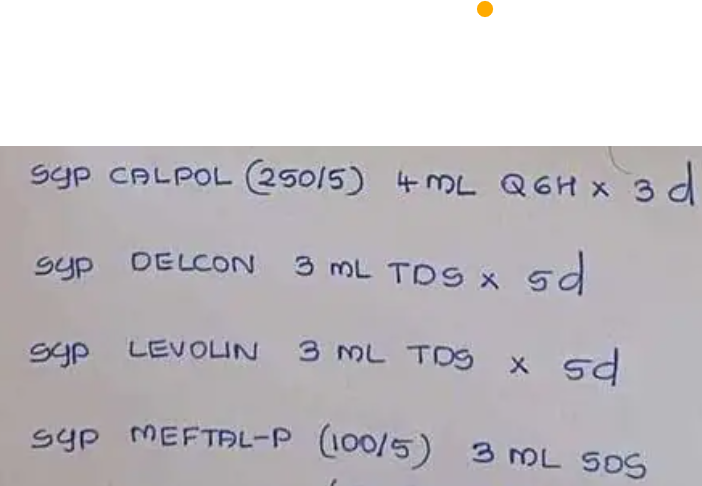 SYP CALPOL (250/5) 4 ML Q6H x 3 d
SYP DELCON 3 ML TDS x 5d
SYP LEVOLIN 3 ML TDS x 5d
SYP MEFTAL-P (100/5) 3 ML SOS